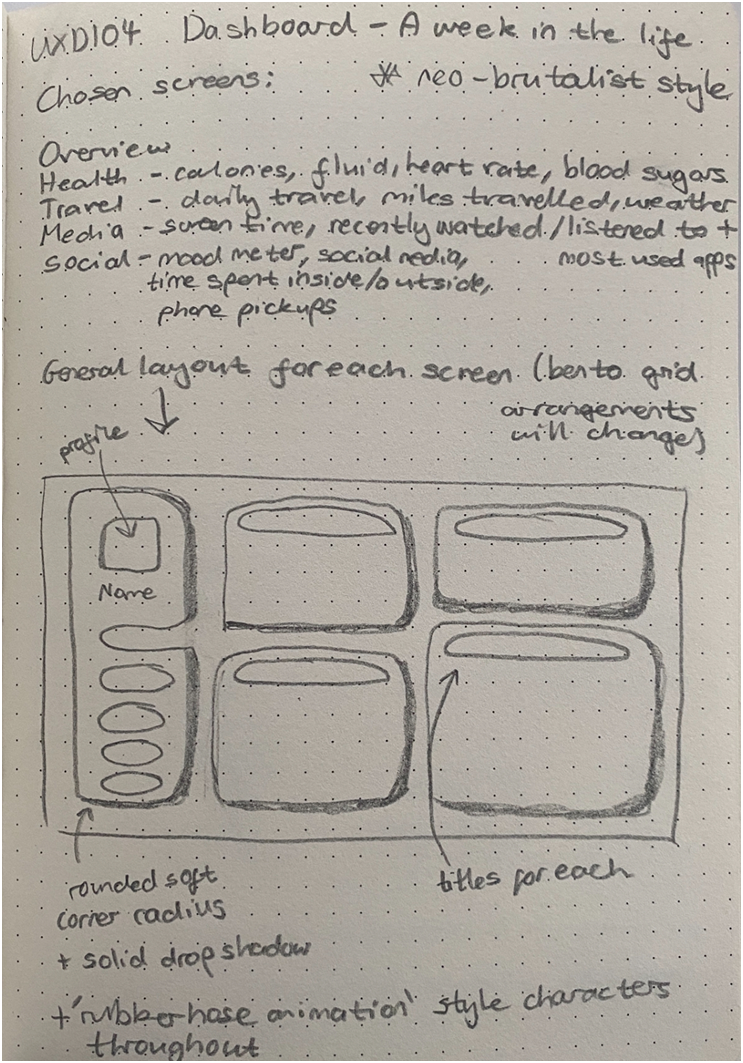 UXD104 Dashboard - A week in the life
Chosen screens: * neo-brutalist style
Overview
Health - calories, fluid, heart rate, blood sugars
Travel - daily travel, miles travelled, weather
Media - screen time, recently watched/listened to +
most used apps
Social - mood meter, social media,
time spent inside/outside,
phone pickups
General layout for each screen (bento grid
arrangements
will change)
profile
Name
rounded soft
corner radius
+ solid drop shadow
titles for each
+ 'rubberhose animation' style characters
throughout